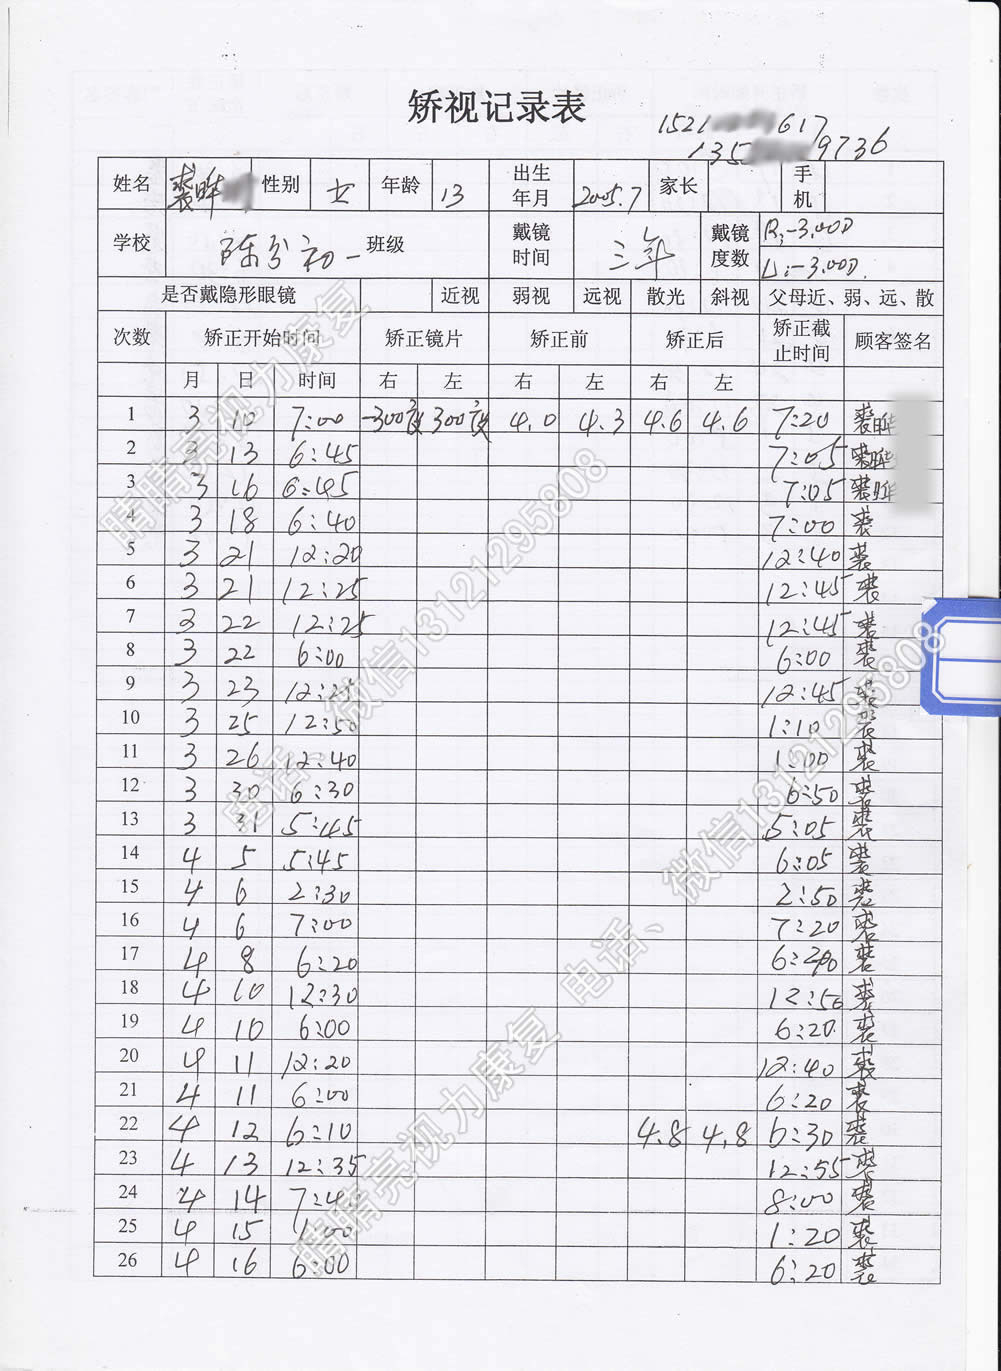 矫视记录表
1521 617
135 9736
姓名 裴晔 性别 女 年龄 13 出生年月 2005.7 家长 手机
学校 陈分初一 班级 戴镜时间 三年 戴镜度数 R:-3.00D
L:-3.00D.
是否戴隐形眼镜 近视 弱视 远视 散光 斜视 父母近、弱、远、散
次数 矫正开始时间 矫正镜片 矫正前 矫正后 矫正截止时间 顾客签名
月 日 时间 右 左 右 左 右 左
1 3 10 7:00 -300度 300度 4.0 4.3 4.6 4.6 7:20 裴晔
2 3 13 6:45 7:05 裴晔
3 3 16 6:45 7:05 裴晔
4 3 18 6:40 7:00 裴
5 3 21 12:20 12:40 裴
6 3 21 12:25 12:45 裴
7 3 22 12:25 12:45 裴
8 3 22 6:00 6:00 裴
9 3 23 12:25 12:45 裴
10 3 25 12:50 1:10 裴
11 3 26 12:40 1:00 裴
12 3 30 6:30 6:50 裴
13 3 31 5:45 5:05 裴
14 4 5 5:45 6:05 裴
15 4 6 2:30 2:50 裴
16 4 6 7:00 7:20 裴
17 4 8 6:20 裴
18 4 10 12:30 12:50 裴
19 4 10 6:00 6:20 裴
20 4 11 12:20 12:40 裴
21 4 11 6:00 6:20 裴
22 4 12 6:10 4.8 4.8 6:30 裴
23 4 13 12:35 12:55 裴
24 4 14 7:40 8:00 裴
25 4 15 1:00 1:20 裴
26 4 16 6:00 6:20 裴
睛睛亮视力康复
电话、微信13121295808
睛睛亮视力康复
电话、微信13121295808